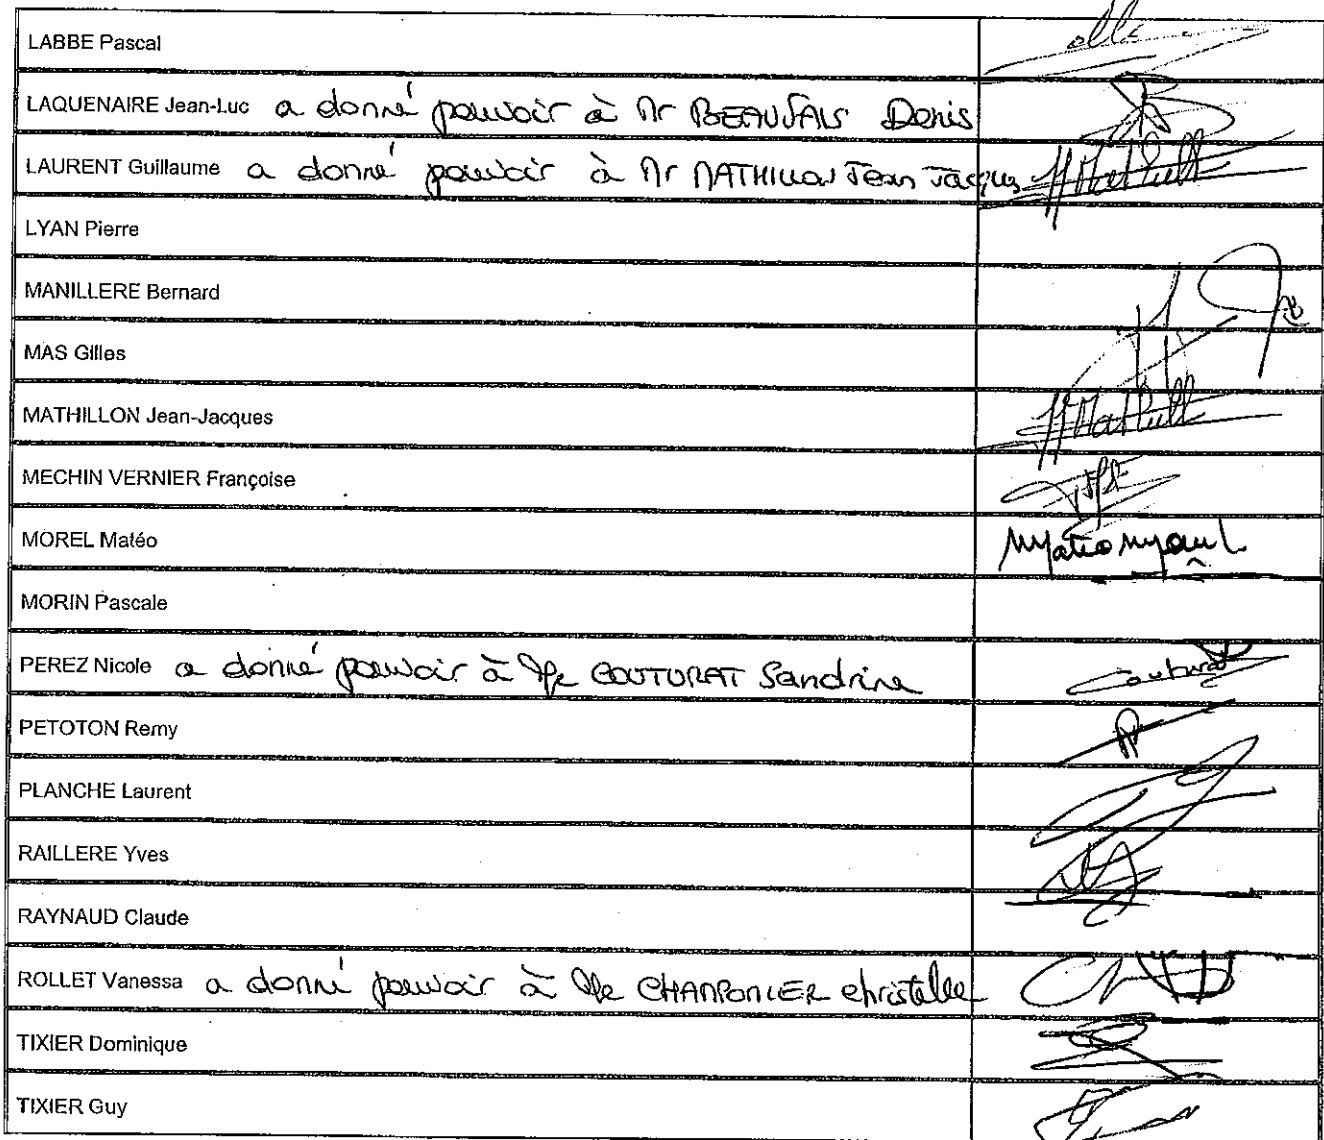 LABBE Pascal
LAQUENAIRE Jean-Luc a donné pouvoir à Mr BEAUVAIS Denis
LAURENT Guillaume a donné pouvoir à Mr MATHILLON Jean Jacques
LYAN Pierre
MANILLERE Bernard
MAS Gilles
MATHILLON Jean-Jacques
MECHIN VERNIER Françoise
MOREL Matéo
MORIN Pascale
PEREZ Nicole a donné pouvoir à Me COUTURAT Sandrine
PETOTON Remy
PLANCHE Laurent
RAILLERE Yves
RAYNAUD Claude
ROLLET Vanessa a donné pouvoir à Me CHAMPONIER christelle
TIXIER Dominique
TIXIER Guy